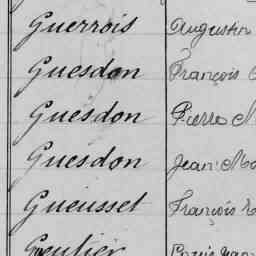 Guerrois Augustin
Guesdon François
Guesdon Pierre M
Guesdon Jean Ma
Gueusset François